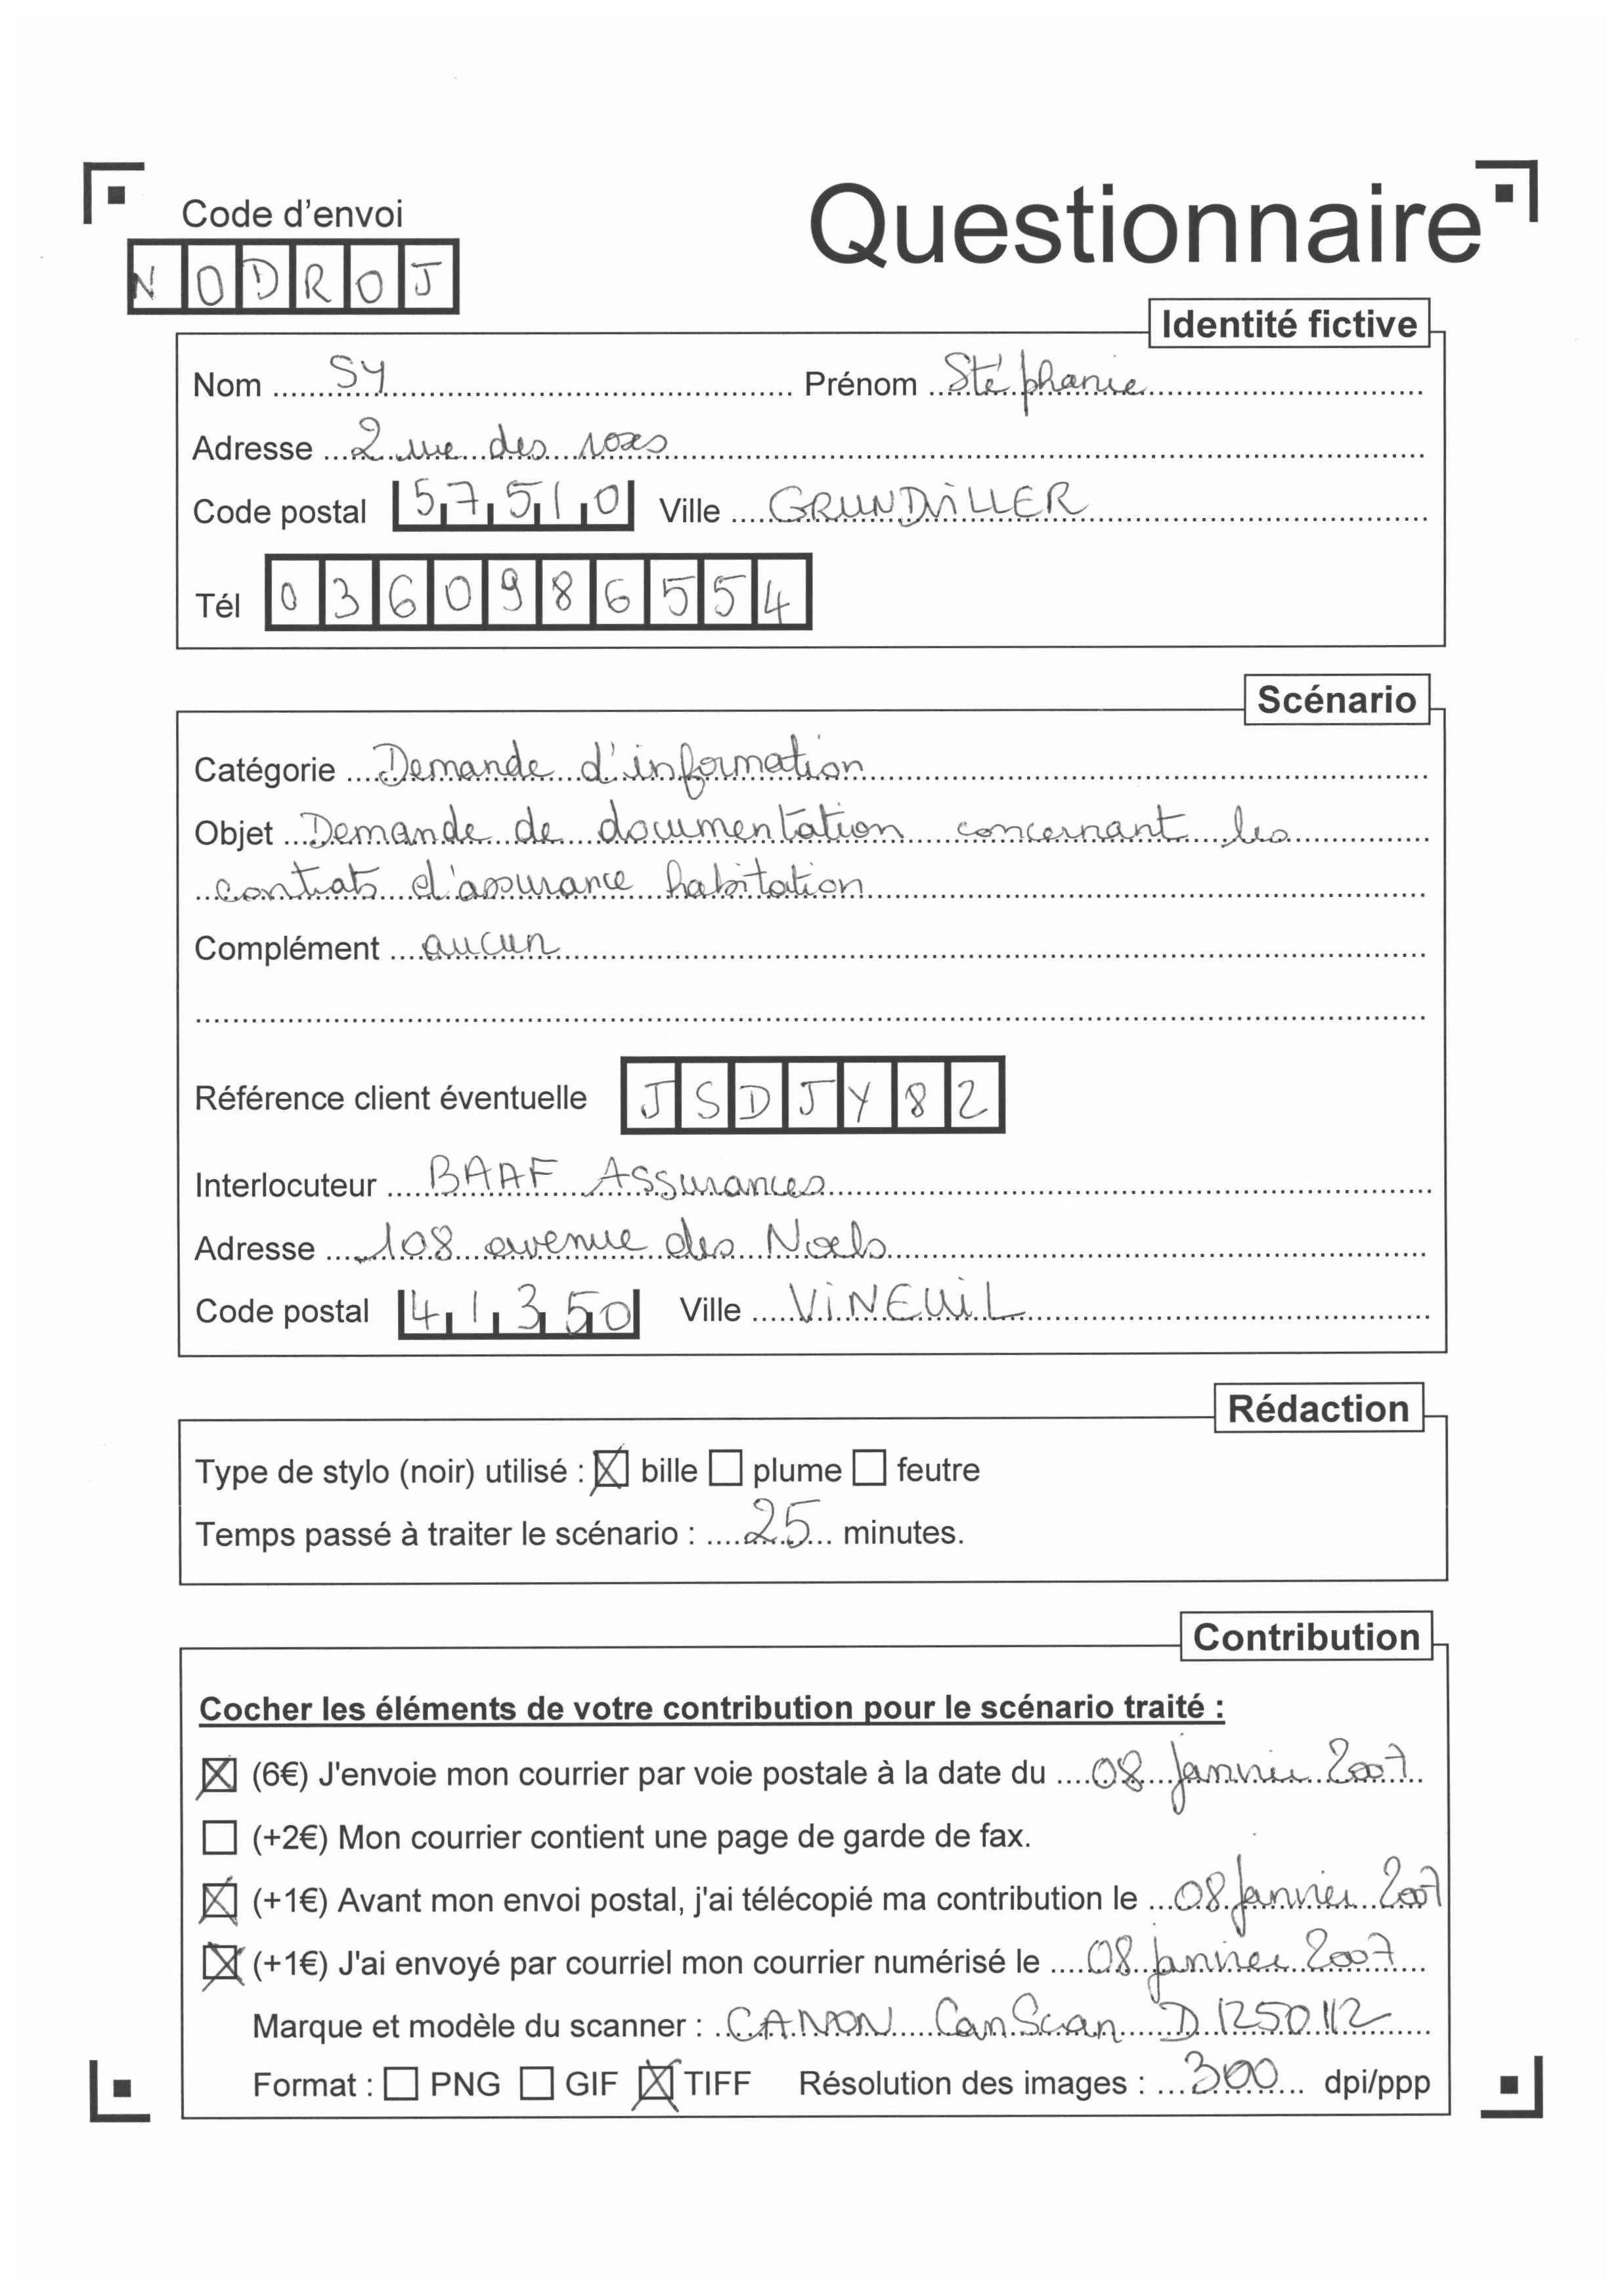 Code d'envoi
Questionnaire
NODROJ
Identité fictive
Nom SY Prénom Stéphanie
Adresse 2 rue des roses
Code postal 57510 Ville GRUNDVILLER
Tél 0360986554
Scénario
Catégorie Demande d'information
Objet Demande de documentation concernant les
contrats d'assurance habitation
Complément aucun
Référence client éventuelle JSDJY82
Interlocuteur BAAF Assurances
Adresse 108 avenue des Noels
Code postal 41350 Ville VINEUIL
Rédaction
Type de stylo (noir) utilisé : ☒ bille ☐ plume ☐ feutre
Temps passé à traiter le scénario : 25 minutes.
Contribution
Cocher les éléments de votre contribution pour le scénario traité :
☒ (6€) J'envoie mon courrier par voie postale à la date du 08 Janvier 2007
☐ (+2€) Mon courrier contient une page de garde de fax.
☒ (+1€) Avant mon envoi postal, j'ai télécopié ma contribution le 08 Janvier 2007
☒ (+1€) J'ai envoyé par courriel mon courrier numérisé le 08 Janvier 2007
Marque et modèle du scanner : CANON CanScan D1250U2
Format : ☐ PNG ☐ GIF ☒ TIFF Résolution des images : 300 dpi/ppp